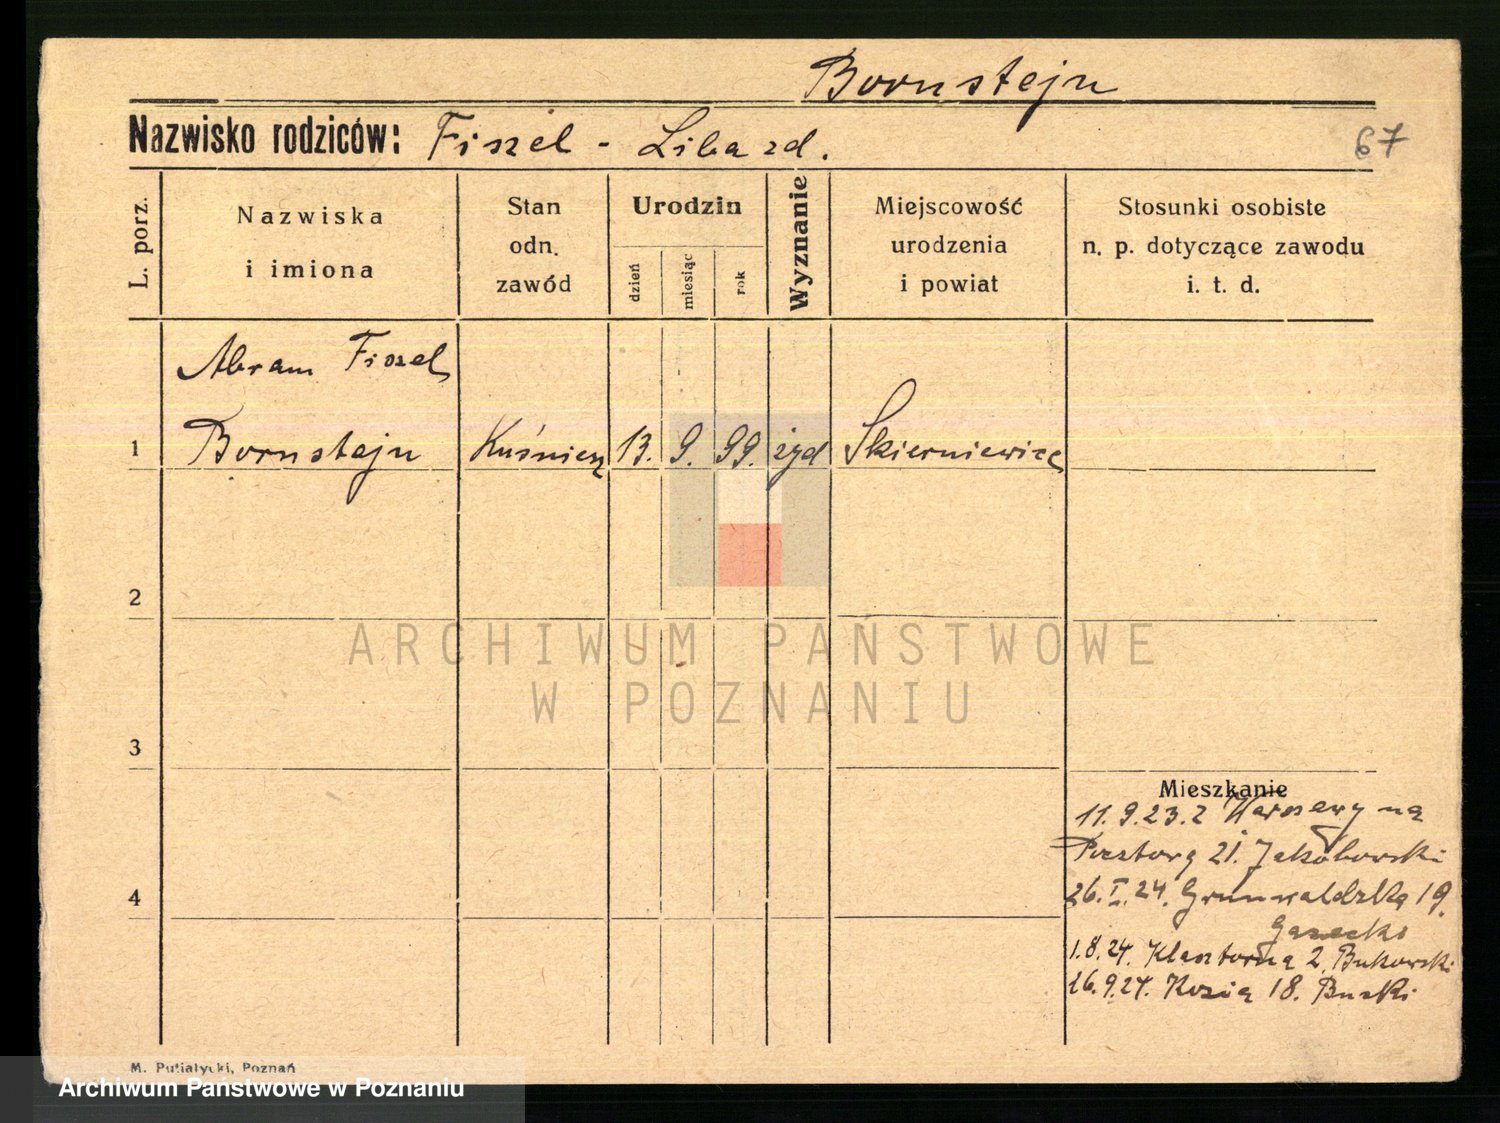 Bornstejn
Nazwisko rodziców: Fiszel - Libard.
67
L. porz.
Nazwiska
i imiona
Stan
odn.
zawód
Urodzin
dzień
miesiąc
rok
Wyznanie
Miejscowość
urodzenia
i powiat
Stosunki osobiste
n. p. dotyczące zawodu
i. t. d.
Abram Fiszel
1 Bornstejn Kuśnierz 13. 9. 99. żyd Skierniewice
2
ARCHIWUM PAŃSTWOWE
W POZNANIU
3
Mieszkanie
11.9.23. z Warszawy na
21. Jakóbowski
4
26.I.24. Grunwaldzka 19.
1.8.24. Klasztorna 2, Bukowski
16.9.24. Kozia 18. Buski
M. Putiatycki, Poznań
Archiwum Państwowe w Poznaniu